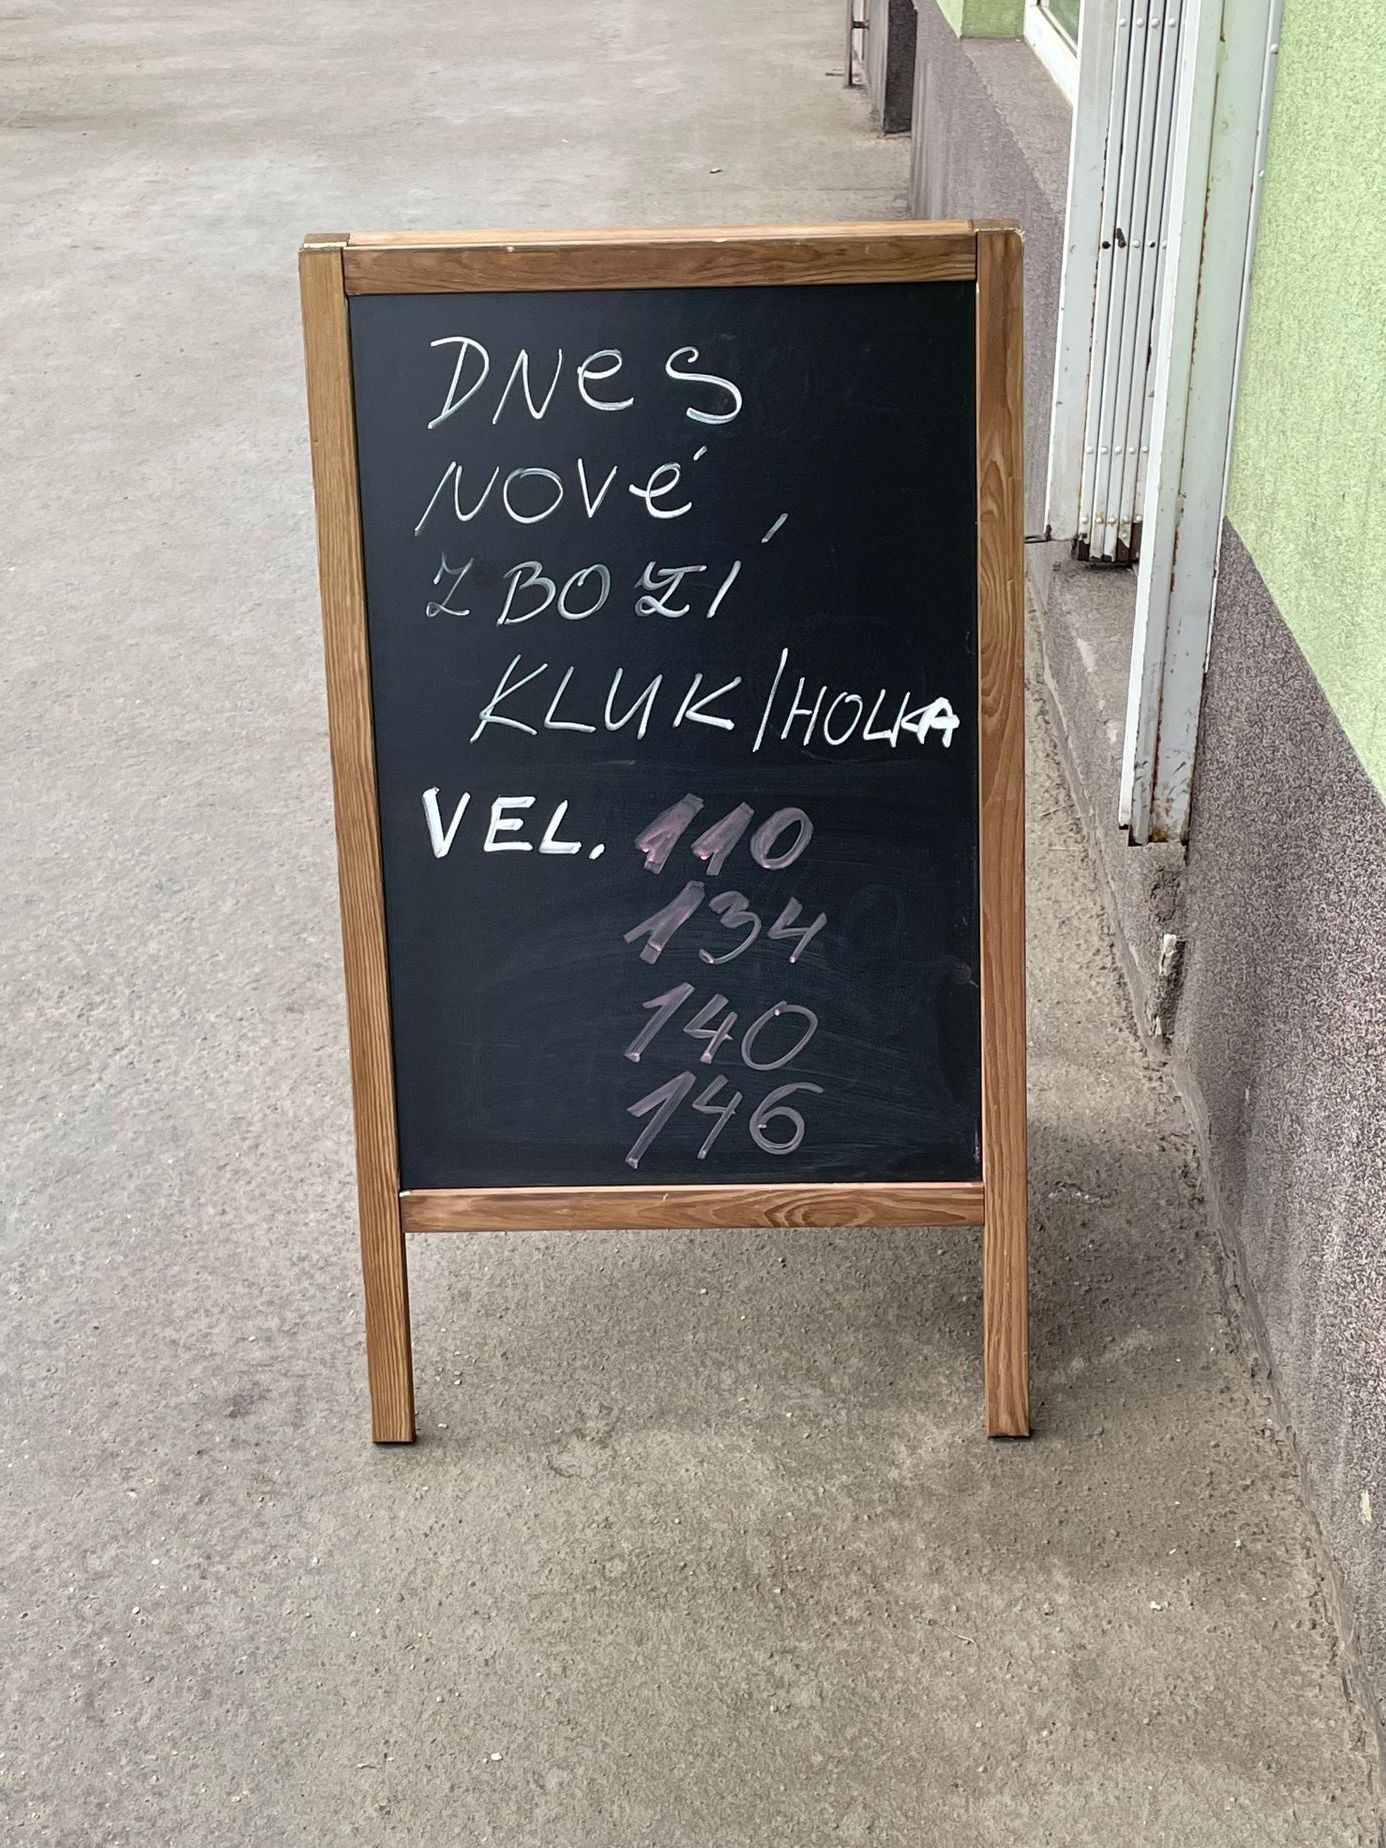 DNeS
NOVé
ZBOZÍ
KLUK/HOLKA
VEL. 110
134
140
146